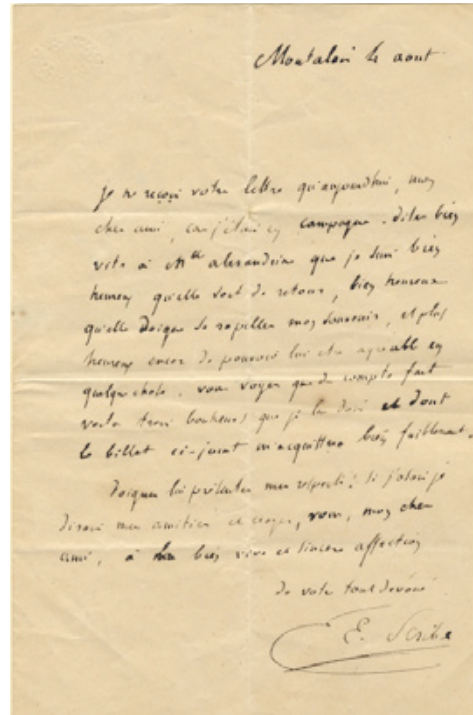 Montalais le août
Je ne reçois votre lettre qu'aujourd'hui, mon
cher ami, car j'étais en campagne. Dites bien
vite à Mlle alexandrine que je suis bien
heureux qu'elle soit de retour, bien heureux
qu'elle daigne se rapeller mon souvenir, et plus
heureux encor de pouvoir lui être agréable en
quelque chose. vous voyez que de compte fait
voila trois bonheurs que je lui dois et dont
le billet ci-joint m'acquittera bien faiblement.
Daignez lui présenter mes respects! Si j'osais je
dirais mes amitiés et croyez, vous, mon cher
ami, à la bien vive et sincère affection
de votre tout dévoué
E. Scribe